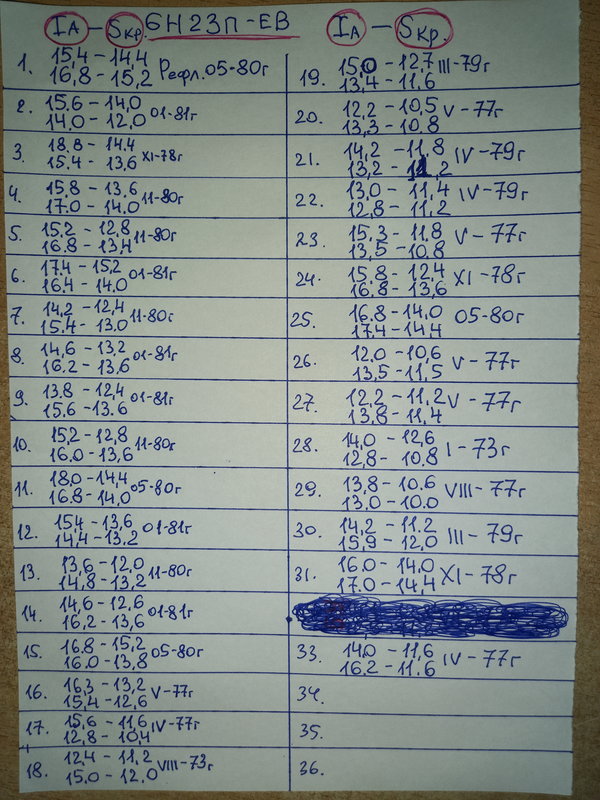 IА – Sкр. 6Н23П-ЕВ IА – Sкр.
1. 15,4 – 14,4
16,8 – 15,2 Рефл. 05-80г
2. 15,6 – 14,0
14,0 – 12,0 01-81г
3. 18,8 – 14,4
15,4 – 13,6 XI-78г
4. 15,8 – 13,6
17,0 – 14,0 11-80г
5. 15,2 – 12,8
16,8 – 13,4 11-80г
6. 17,4 – 15,2
16,4 – 14,0 01-81г
7. 14,2 – 12,4
15,4 – 13,0 11-80г
8. 14,6 – 13,2
16,2 – 13,6 01-81г
9. 13,8 – 12,4
15,6 – 13,6 01-81г
10. 15,2 – 12,8
16,0 – 13,6 11-80г
11. 18,0 – 14,4
16,8 – 14,0 05-80г
12. 15,4 – 13,6
14,4 – 13,2 01-81г
13. 13,6 – 12,0
14,8 – 13,2 11-80г
14. 14,6 – 12,6
16,2 – 13,6 01-81г
15. 16,8 – 15,2
16,0 – 13,8 05-80г
16. 16,3 – 13,2
15,4 – 12,6 V-77г
17. 15,6 – 11,6
12,8 – 10,4 IV-77г
18. 12,4 – 11,2
15,0 – 12,0 VIII-73г
19. 15,0 – 12,7 III-79г
13,4 – 11,6
20. 12,2 – 10,5 V-77г
13,3 – 10,8
21. 14,2 – 11,8 IV-79г
13,2 – 11,2
22. 13,0 – 11,4 IV-79г
12,8 – 11,2
23. 15,3 – 11,8 V-77г
13,5 – 10,8
24. 15,8 – 12,4 XI-78г
16,8 – 13,6
25. 16,8 – 14,0 05-80г
17,4 – 14,4
26. 12,0 – 10,6 V-77г
13,5 – 11,5
27. 12,2 – 11,2 V-77г
13,8 – 11,4
28. 14,0 – 12,6 I-73г
12,8 – 10,8
29. 13,8 – 10,6 VIII-77г
13,0 – 10,0
30. 14,2 – 11,2 III-79г
15,9 – 12,0
31. 16,0 – 14,0 XI-78г
17,0 – 14,4
33. 14,0 – 11,6 IV-77г
16,2 – 11,6
34.
35.
36.